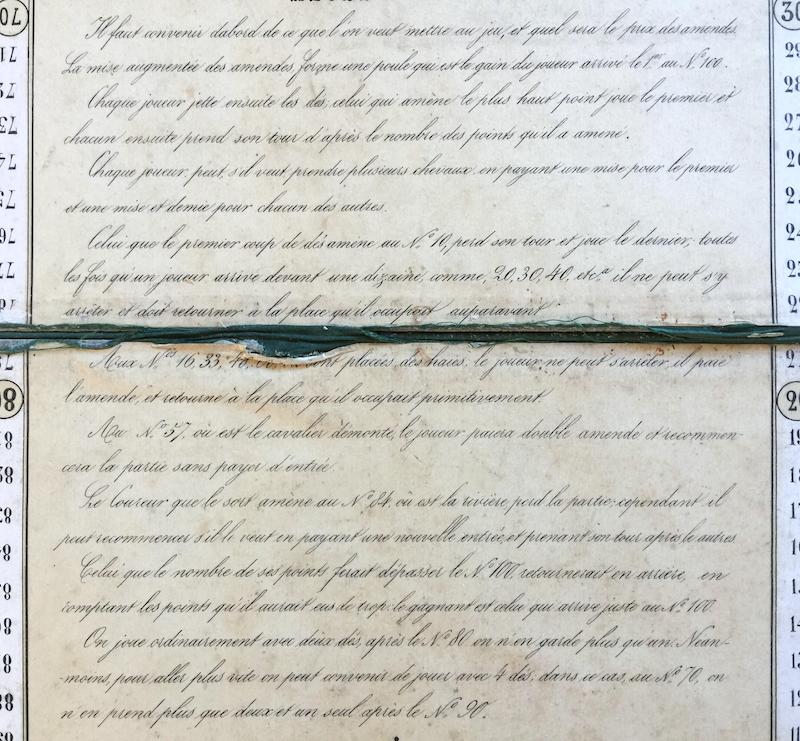 Il faut convenir dabord de ce que l'on veut mettre au jeu, et quel sera le prix des amendes.
La mise augmentée des amendes, forme une poule qui est le gain du joueur arrivé le 1er au No. 100.
Chaque joueur jette ensuite les dés, celui qui amène le plus haut point joue le premier et
chacun ensuite prend son tour d'après le nombre des points qu'il a amené.
Chaque joueur peut, s'il veut prendre plusieurs chevaux, en payant une mise pour le premier
et une mise et demie pour chacun des autres.
Celui que le premier coup de dés amène au No. 10, perd son tour et joue le dernier; toutes
les fois qu'un joueur arrive devant une dizaine, comme, 20, 30, 40, etca. il ne peut s'y
arrêter et doit retourner à la place qu'il occupait auparavant
Aux Nos 16, 33, placées des haies, le joueur ne peut s'arrêter, il paie
l'amende, et retourne à la place qu'il occupait primitivement.
Au No 57, où est le cavalier démonté, le joueur paiera double amende et recommen-
cera la partie sans payer d'entrée.
Le Coureur que le sort amène au No. 84, où est la rivière, perd la partie; cependant il
peut recommencer s'il le veut en payant une nouvelle entrée, et prenant son tour après le autres.
Celui que le nombre de ses points ferait dépasser le No. 100, retournerait en arrière, en
comptant les points qu'il aurait eus de trop; le gagnant est celui qui arrive juste au No. 100.
On joue ordinairement avec deux dés, après le No. 80 on n'en garde plus qu'un. Néan-
-moins, pour aller plus vite on peut convenir de jouer avec 4 dés; dans ce cas, au No. 70, on
n'en prend plus que deux et un seul après le No. 90.
70
71
72
73
74
75
76
77
80
81
82
83
84
85
86
87
88
30
29
28
27
26
25
24
23
22
21
20
19
18
17
16
15
14
13
12
11